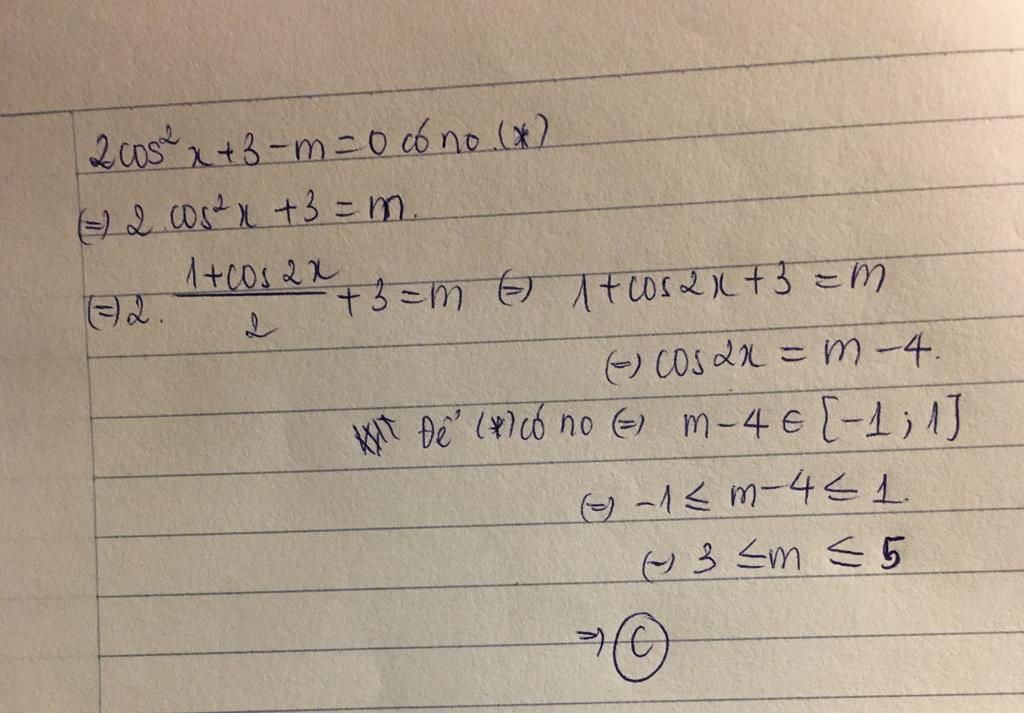 2cos²x+3-m=0 có no (*)
(=) 2.cos²x +3 = m.
(=) 2. (1+cos2x)/2 + 3 = m (=) 1+cos2x+3 = m
(=) cos2x = m-4.
Để (*) có no (=) m-4 ∈ [-1; 1]
(=) -1 ≤ m-4 ≤ 1.
(=) 3 ≤ m ≤ 5
=) C